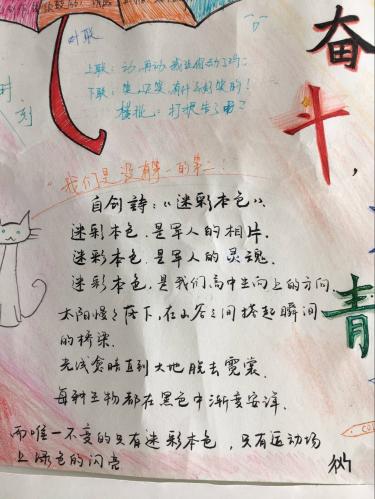 对联
上联：动、再动 我让你动了吗？
下联：笑、还笑 有什么好笑的！
横批：打报告了吗？
奋斗，
青
"我们是没有第一的第二
自创詩：《迷彩本色》．
迷彩本色．是军人的相片．
迷彩本色．是军人的灵魂．
迷彩本色，是我们高中生向上的方向．
太阳慢慢落下，在山谷之间搭起瞬间
的桥梁．
光线食暗直到大地脱去霓裳．
每种生物都在黑色中渐度安详．
而唯一不变的只有迷彩本色，只有运动场
上绿色的闪亮